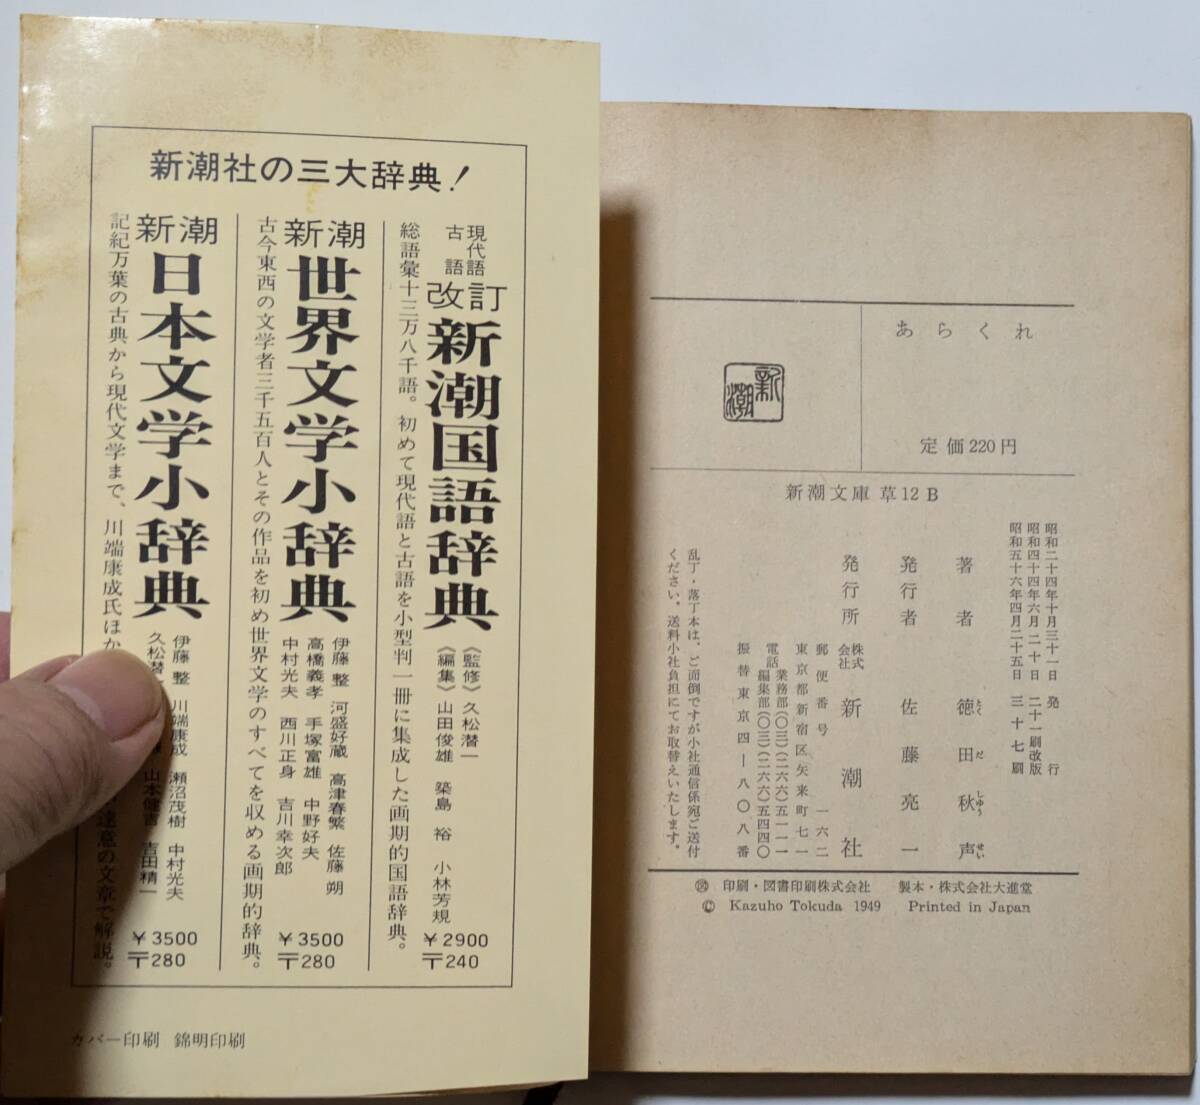 新潮社の三大辞典!
現代語
古語
改訂
新潮国語辞典
《監修》久松潜一
《編集》山田俊雄 築島 裕 小林芳規
¥2900
〒240
総語彙十三万八千語。初めて現代語と古語を小型判一冊に集成した画期的国語辞典。
新潮
世界文学小辞典
伊藤 整 河盛好蔵 高津春繁 佐藤 朔
高橋義孝 手塚富雄 中野好夫
中村光夫 西川正身 吉川幸次郎
¥3500
〒280
古今東西の文学者三千五百人とその作品を初め世界文学のすべてを収める画期的辞典。
新潮
日本文学小辞典
伊藤 整 川端康成 瀬沼茂樹 中村光夫
久松潜 山本健吉 吉田精一
¥3500
〒280
記紀万葉の古典から現代文学まで、川端康成氏ほか 達意の文章で解説。
カバー印刷 錦明印刷
あらくれ
新潮
定価220円
新潮文庫 草12B
昭和二十四年十月三十一日 発行
昭和四十四年六月二十日 二十一刷改版
昭和五十六年四月二十五日 三十七刷
著者 徳田秋声
とくだしゅうせい
発行者 佐藤亮一
発行所 株式会社 新潮社
郵便番号 一六二
東京都新宿区矢来町七一
電話 業務部(〇三)(二六六)五一一一
編集部(〇三)(二六六)五四四〇
振替東京四―八〇八番
乱丁・落丁本は、ご面倒ですが小社通信係宛ご送付
ください。送料小社負担にてお取替えいたします。
印刷・図書印刷株式会社 製本・株式会社大進堂
© Kazuho Tokuda 1949 Printed in Japan